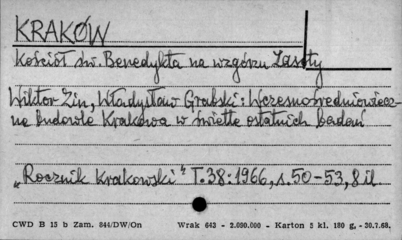 KRAKÓW
Kościół św. Benedykta na wzgórzu Lasoty
Wiktor Zin, Władysław Grabski: Wczesnośredniowiecz-
ne budowle Krakowa w świetle ostatnich badań
„Rocznik Krakowski" T.38:1966, s.50-53, 8 il.
CWD B 15 b Zam. 844/DW/On Wrak 643 - 2.000.000 - Karton 5 kl. 180 g. - 20.7.68.